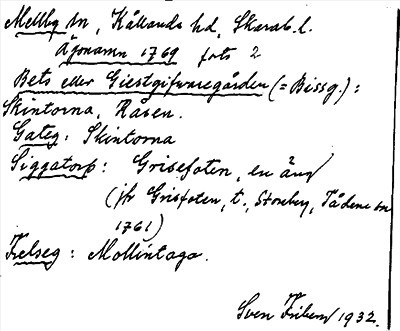 Mellby sn, Kållands hd, Skarab. l.
Äjonamn 1769 fots 2
Bets eller Giestgifvaregården (= Bissg.):
Skintorna, Råsen.
Gateg: Skintorna
Siggatorp: Grisefoten, en äng
(jfr Grisfoten, t., Storeberg, Tådene sn
1761)
Frelseg: Mollintaga.
Sven Fribers 1932.